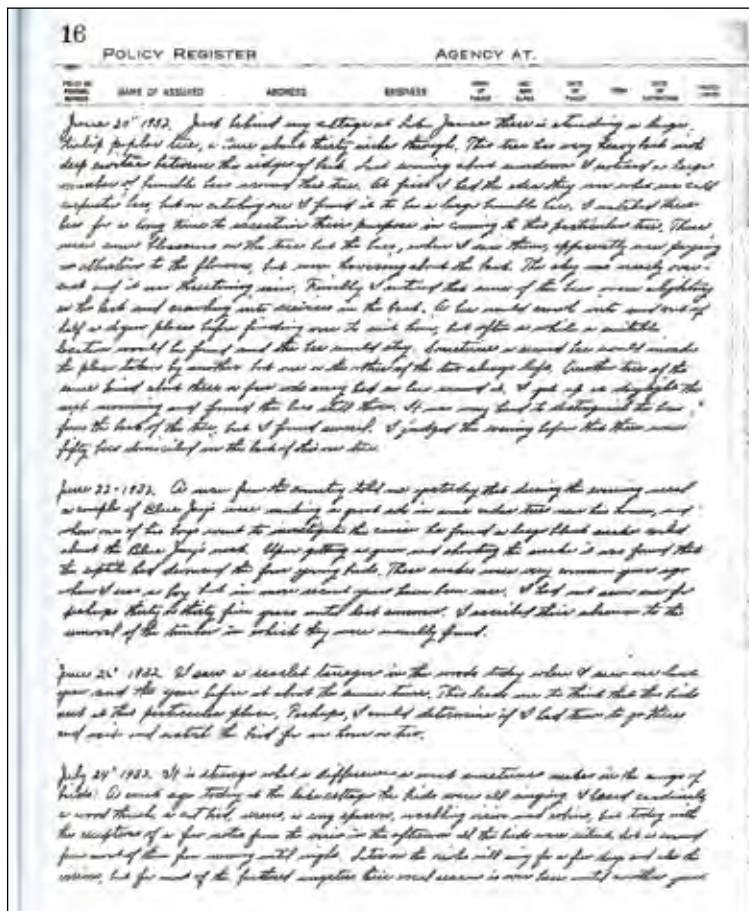 16
POLICY REGISTER AGENCY AT.
NAME OF ASSURED ADDRESS BUSINESS
June 20" 1932. Just behind my cottage at Lake James there is standing a large
tulip poplar tree, a tree about thirty inches through. This tree has very heavy bark with
deep between the ridges of bark. Last evening about sundown I noticed a large
number of bumble bees around this tree. At first I had the idea they were what we call
carpenter bees, but on catching one I found it to be a large bumble bee. I watched these
bees for a long time to ascertain their purpose in coming to this particular tree. There
were some blossoms on the tree but the bees, when I saw them, apparently were paying
no attention to the flowers, but were hovering about the bark. The sky was nearly over-
cast and it was threatening rain. Finally I noticed that some of the bees were alighting
on the bark and crawling into crevices in the bark. A bee would crawl into and out of
half a dozen places before finding one to suit him, but after a while a suitable
location would be found and the bee would stay. Sometimes a second bee would invade
the place taken by another but one or the other of the two always left. Another tree of the
same kind about three or four rods away had no bees around it. I got up at daylight the
next morning and found the bees still there. It was very hard to distinguish the bees
from the bark of the tree, but I found several. I judged the evening before that there were
fifty bees domiciled in the bark of this one tree.
June 22-1932. A man from the country told me yesterday that during the morning
a couple of Blue Jays were making a great ado in some cedar trees near his house, and
when one of his boys went to investigate the cause he found a large black snake coiled
about the Blue Jay's nest. Upon getting a gun and shooting the snake it was found that
the reptile had devoured the four young birds. These snakes were very common years ago
when I was a boy but in more recent years have been rare. I had not seen one for
perhaps thirty to thirty five years until last summer. I ascribed their absence to the
removal of the timber in which they were usually found.
June 26" 1932. I saw a scarlet tanager in the woods today where I saw one last
year and the year before at about the same time. This leads me to think that the birds
nest at this particular place. Perhaps, I could determine if I had time to go there
and wait and watch the bird for an hour or two.
July 24" 1932. It is strange what a difference a week sometimes makes in the songs of
birds. A week ago today at the lake cottage the birds were all singing. I heard
a wood thrush, a cat bird, wrens, a song sparrow, warbling vireo and others, but today with
the exception of a few notes from the vireo in the afternoon all the birds were silent,
from morning until night. Later on the will sing for a few days and also the
but for most of the feathered songsters their vocal season is over here until another year